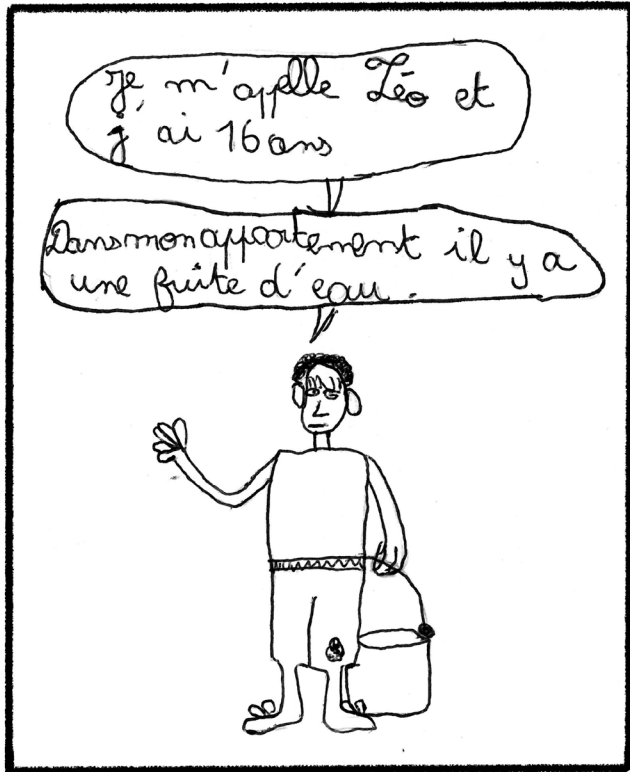 Je m'appelle Léo et
j'ai 16 ans
Dans mon appartement il y a
une fuite d'eau.